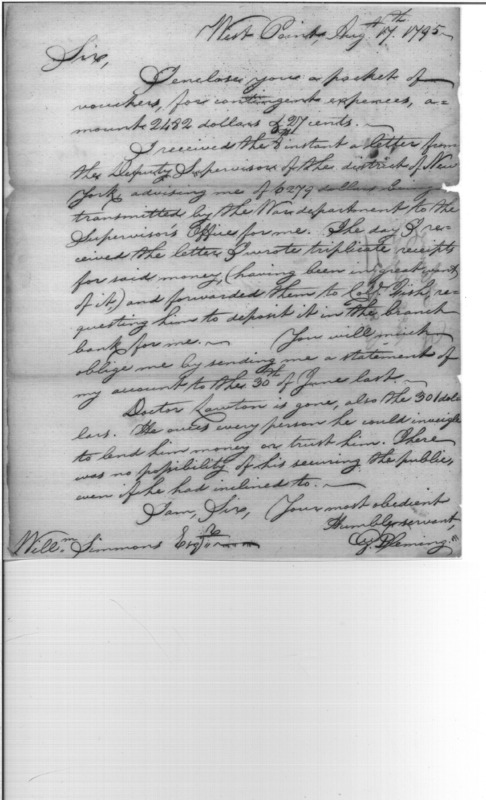 West Point, Augt 17th. 1795
Sir,
I enclose you a packet of
vouchers, for contingent expences, a-
mount 2482 dollars & 27 cents.
I received the instant a letter from
the Deputy Supervisor of the district of New
York, advising me of 6279 dollars being
transmitted by the War department to the
Supervisor's Office for me. The day I re-
ceived the letter I wrote triplicate receipts
for said money, (having been in great want
of it,) and forwarded them to Fish, re-
questing him to deposit it in the branch
bank for me. You will much
oblige me by sending me a statement of
my account to the 30th of June last.
Doctor Lawton is gone, also the 301 dol-
lars. He owes every person he could inveigle
to lend him money or trust him. There
was no possibility of his securing the public,
even if he had inclined to.
I am, Sir, Your most obedient
Humble servant,
Willm Simmons Esqr G. Fleming